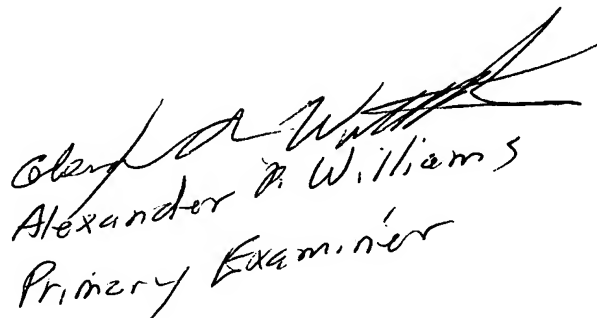 Alexander O. Williams
Primary Examiner